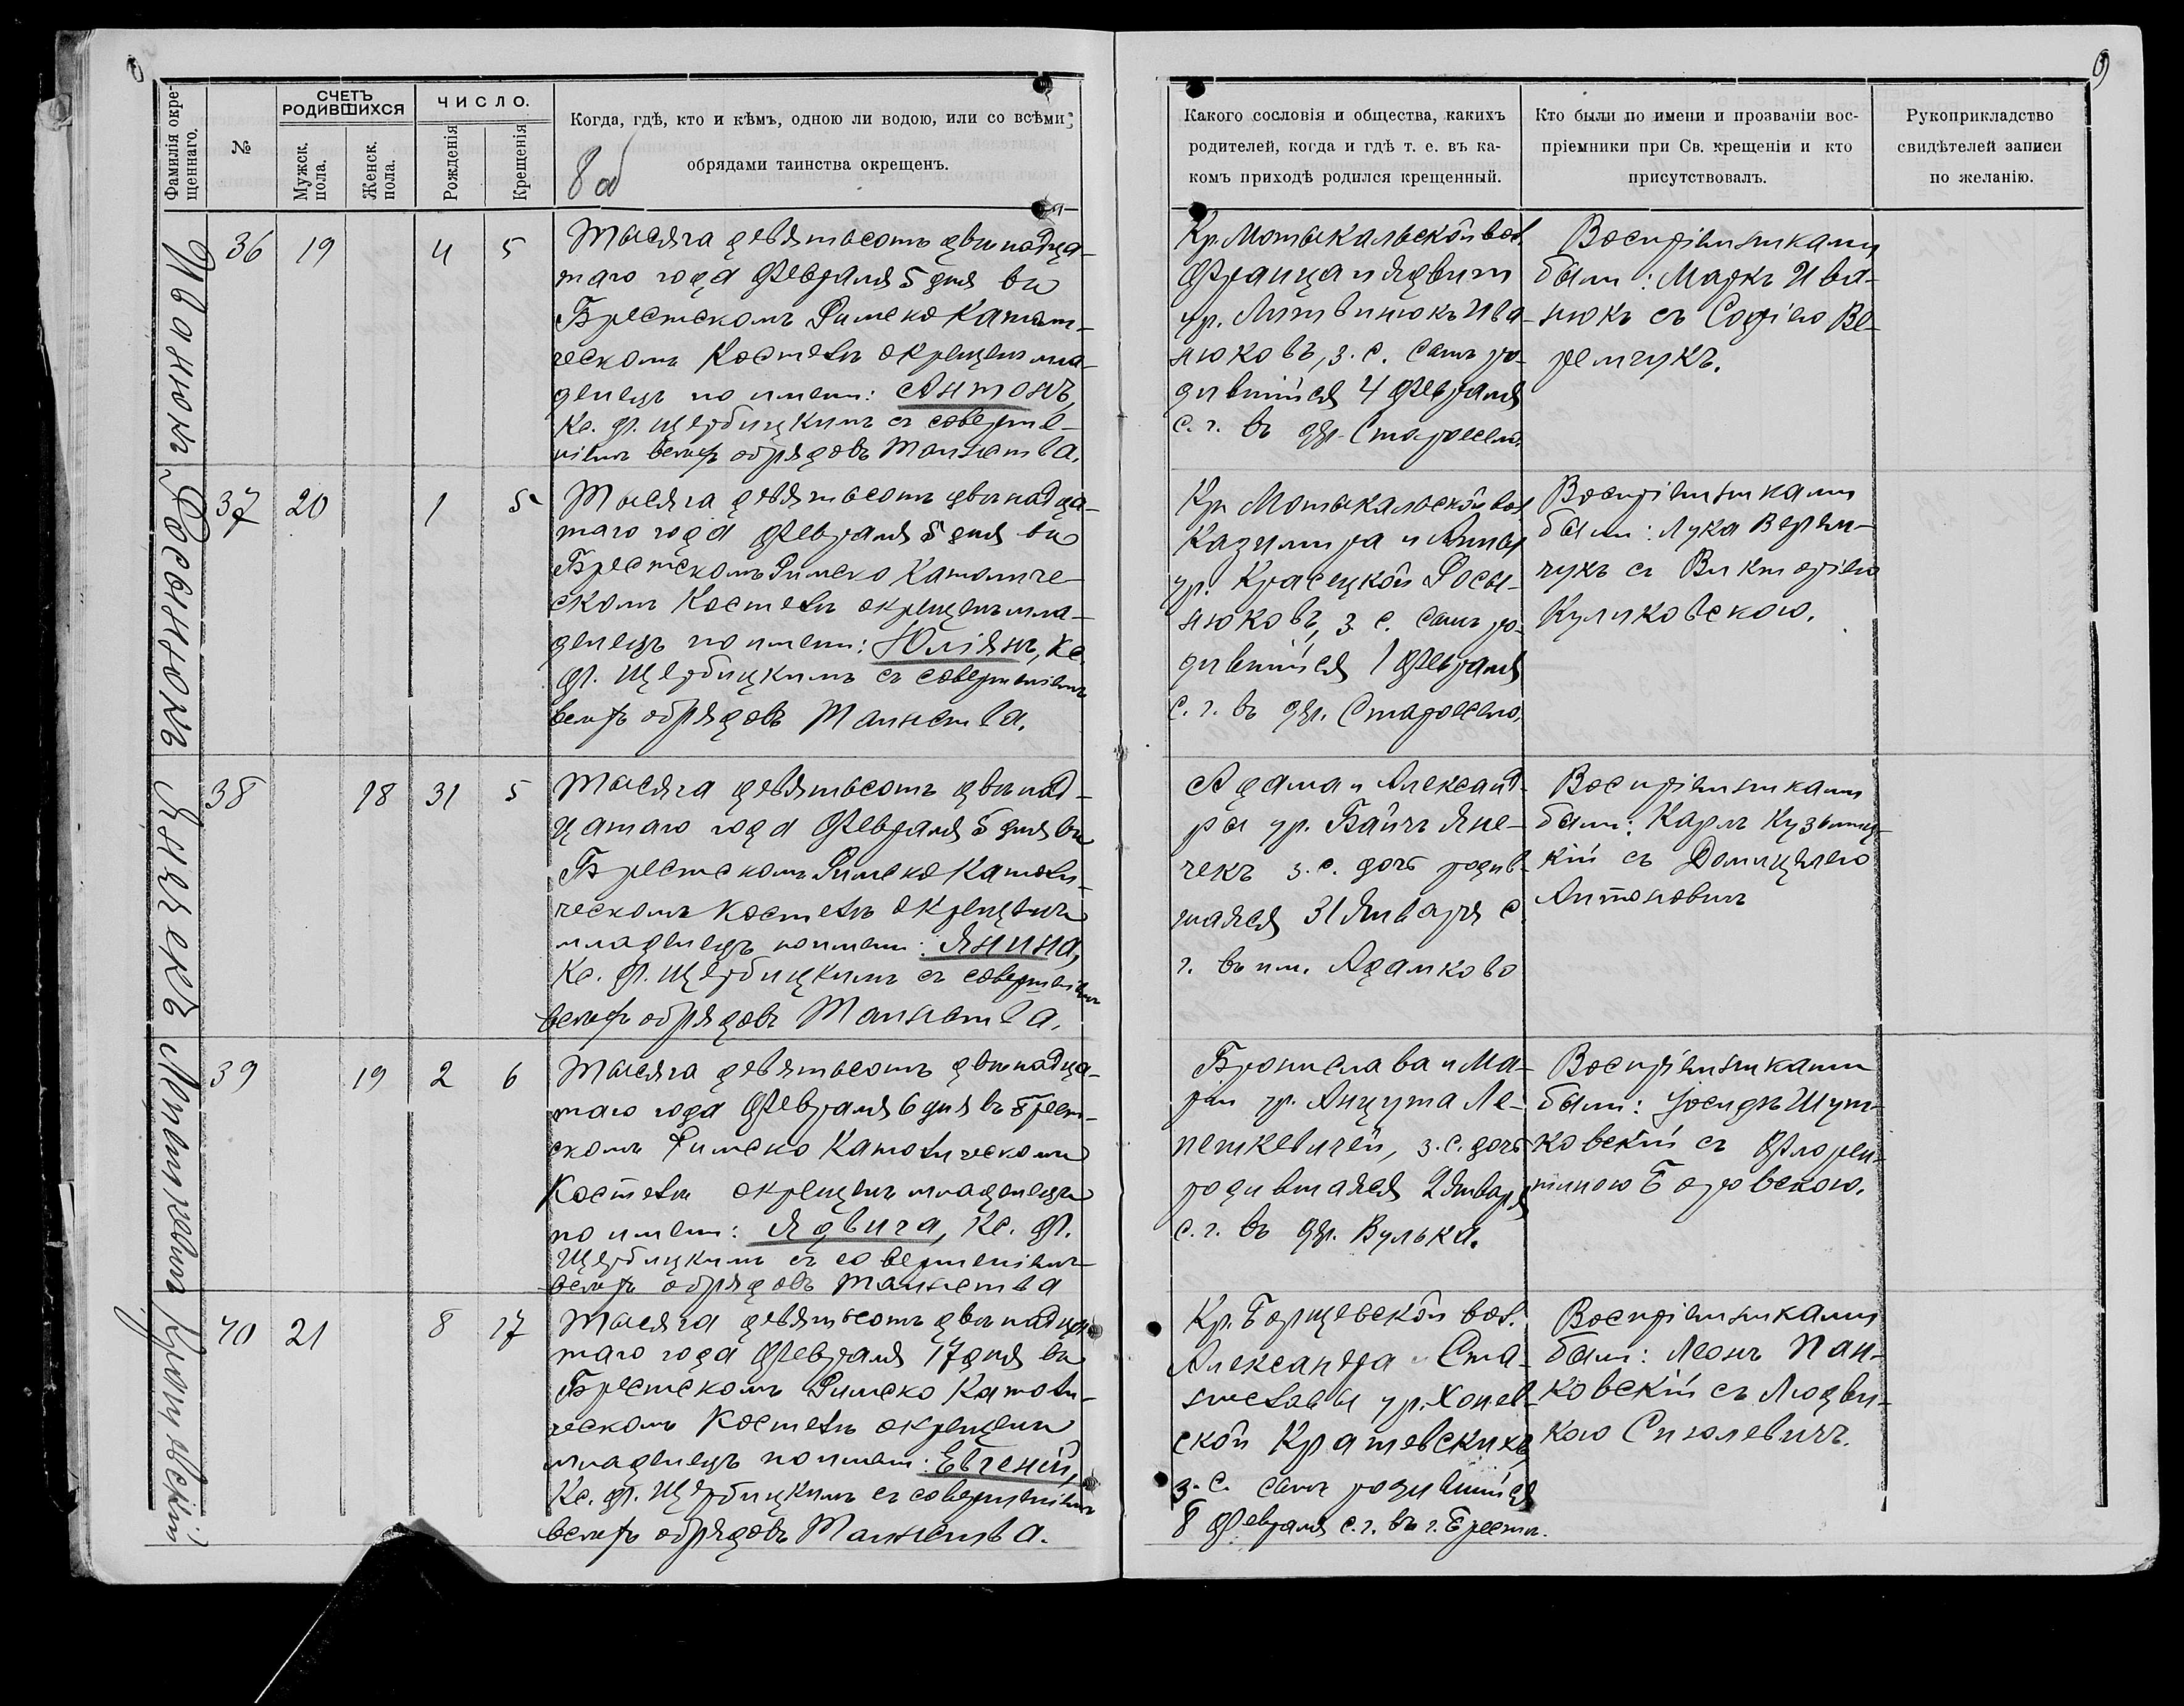 9
Фамилія окре-
щеннаго.
№
СЧЕТЪ
РОДИВШИХСЯ
Мужск.
пола.
Женск.
пола.
ЧИСЛО.
Рожденія
Крещенія
Когда, гдѣ, кто и кѣмъ, одною ли водою, или со всѣми
обрядами таинства окрещенъ.
8 об
Какого сословія и общества, какихъ
родителей, когда и гдѣ т. е. въ ка-
комъ приходѣ родился крещенный.
Кто были по имени и прозванiи вос-
пріемники при Св. крещеніи и кто
присутствовалъ.
Рукоприкладство
свидѣтелей записи
по желанію.
Иванюкъ
36 19 4 5
Тысяча девятьсотъ двѣнадца-
таго года Февраля 5 дня въ
Брестскомъ Римско Католи-
ческомъ Костелѣ окрещенъ мла-
денецъ по имени: Антонъ,
Кс. Ф. Щербицкимъ съ соверше-
ніемъ всѣхъ обрядовъ Таинства.
Кр. Мотыкальской вол.
Франца и Ядвиги
ур. Литвинюкъ Ива-
нюковъ, з. с. сынъ ро-
дившійся 4 Февраля
с. г. въ др. Староселю.
Воспріемниками
были: Маркъ Ива-
нюкъ съ Софіею Ве-
ремчукъ.
Росынюкъ
37 20 1 5
Тысяча девятьсотъ двѣнадца-
таго года Февраля 5 дня въ
Брестскомъ Римско Католиче-
скомъ Костелѣ окрещенъ мла-
денецъ по имени: Юліянъ, Кс.
Ф. Щербицкимъ съ совершеніемъ
всѣхъ обрядовъ Таинства.
Кр. Мотыкальской вол.
Казимира и Анны
ур. Красецкой Росы-
нюковъ, з. с. сынъ ро-
дившійся 1 Февраля
с. г. въ др. Староселю.
Воспріемниками
были: Лука Верем-
чукъ съ Викторіею
Куликовскою.
Янечекъ
38 18 31 5
Тысяча девятьсотъ двѣнад-
цатаго года Февраля 5 дня въ
Брестскомъ Римско Католи-
ческомъ Костелѣ окрещенъ
младенецъ по имени: Янина,
Кс. Ф. Щербицкимъ съ совершеніемъ
всѣхъ обрядовъ Таинства.
Адама и Александ-
ры ур. Байчъ Яне-
чекъ з. с. дочь родив-
шаяся 31 Января с.
г. въ им. Адамково
Воспріемниками
были: Карлъ Кузьмиц-
кій съ Домицелею
Антоновичъ
Лепешкевичъ
39 19 2 6
Тысяча девятьсотъ двѣнадца-
таго года Февраля 6 дня въ Брест-
скомъ Римско Католическомъ
Костелѣ окрещенъ младенецъ
по имени: Ядвига, Кс. Ф.
Щербицкимъ съ совершеніемъ
всѣхъ обрядовъ Таинства
Бронислава и Ма-
ріи ур. Анцута Ле-
пешкевичей, з. с. дочь
родившаяся 2 Января
с. г. въ др. Вулька.
Воспріемниками
были: Іосифъ Шут-
ковскій съ Флорен-
тиною Боровскою.
Крашевскій
40 21 8 17
Тысяча девятьсотъ двѣнадца-
таго года Февраля 17 дня въ
Брестскомъ Римско Католи-
ческомъ Костелѣ окрещенъ
младенецъ по имени: Евгеній,
Кс. Ф. Щербицкимъ съ совершеніемъ
всѣхъ обрядовъ Таинства.
Кр. Борщевской вол.
Александра Ста-
ниславы ур. Хонев-
ской Крашевскихъ
з. с. сынъ родившійся
8 Февраля с. г. въ г. Брестѣ.
Воспріемниками
были: Леонъ Пан-
ковскій съ Людви-
кою Сиголевичъ.